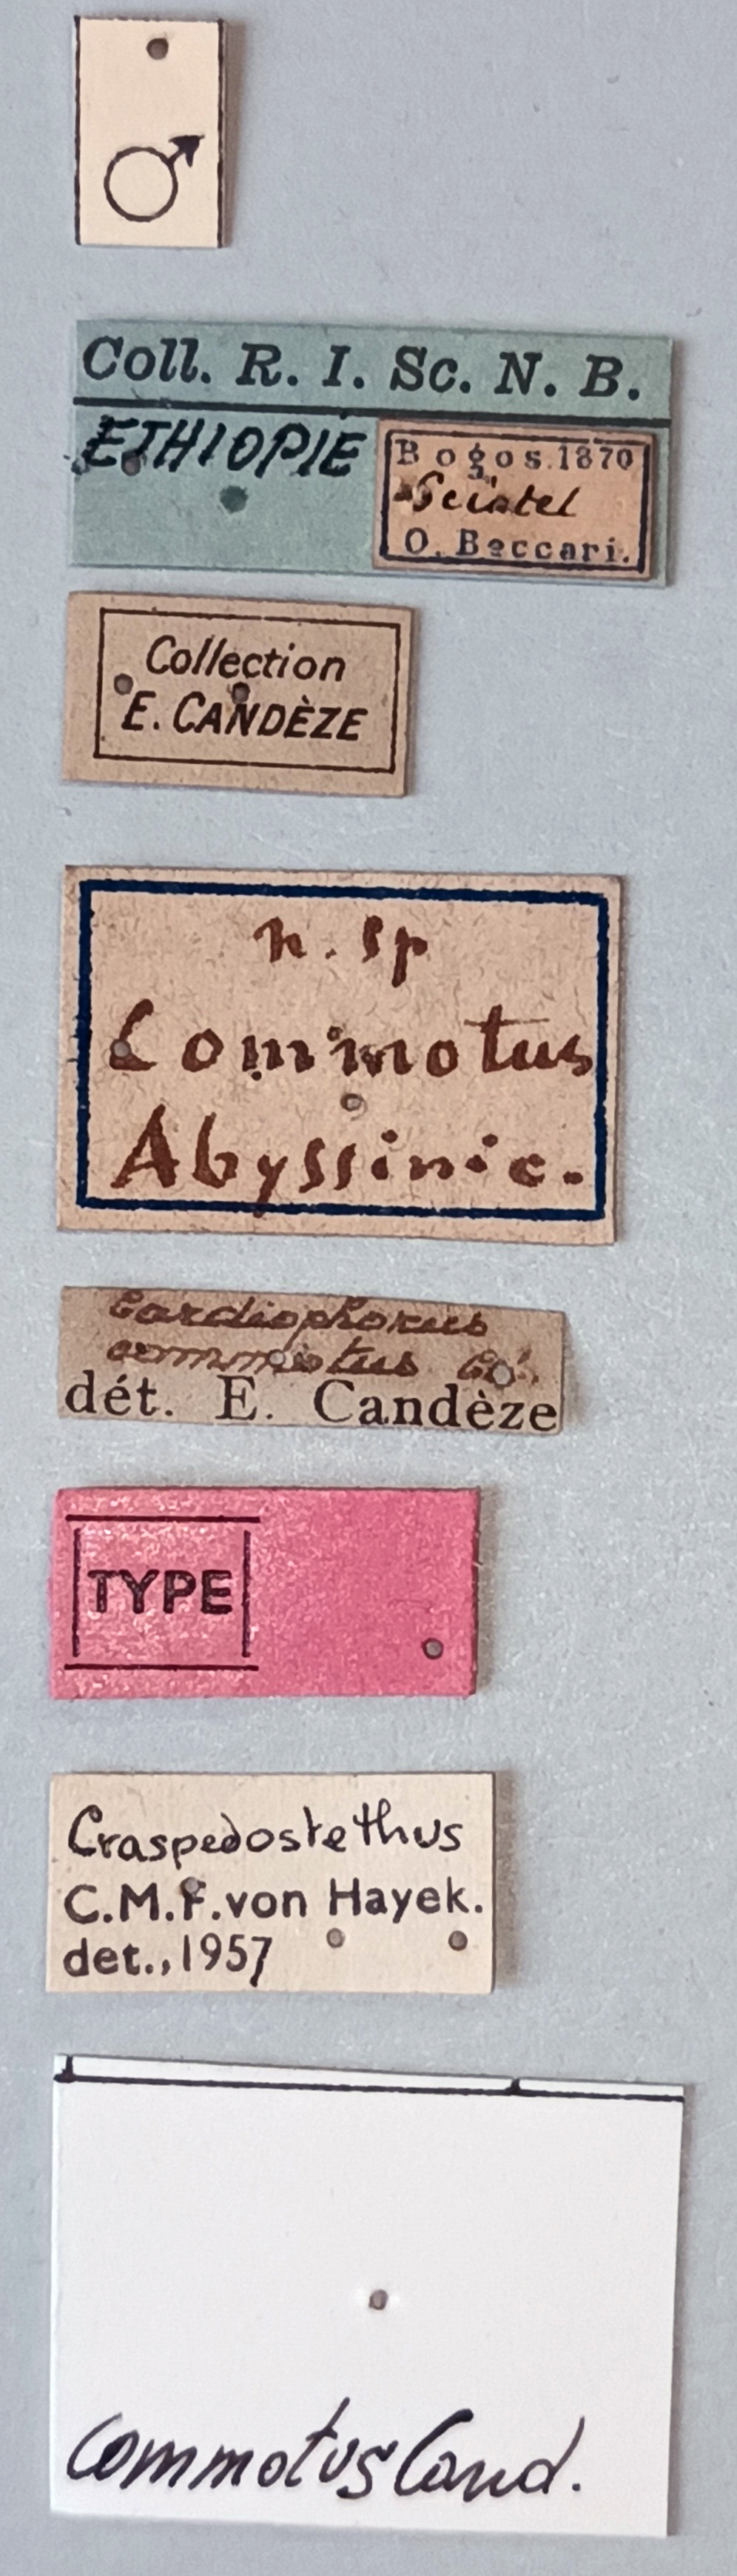 ♂
Coll. R. I. Sc. N. B.
ETHIOPIE
Bogos.1870
Sciotel
O. Beccari.
Collection
E. CANDÈZE
n. sp
Commotus
Abyssinic.
Cardiophorus
commotus Cd.
dét. E. Candèze
TYPE
Craspedostethus
C.M.F.von Hayek.
det.,1957
commotus Cand.